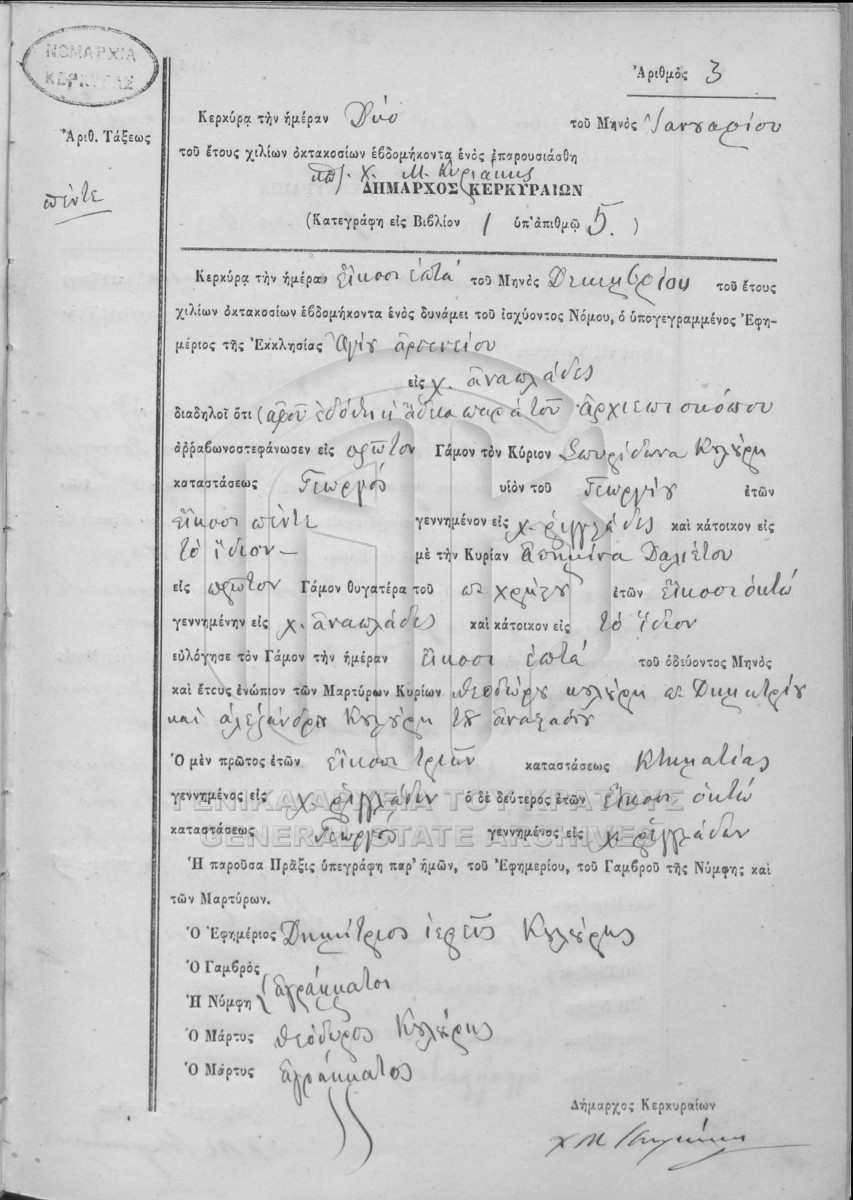 ΝΟΜΑΡΧΙΑ
ΚΕΡΚΥΡΑΣ
Ἀριθμὸς 3
Ἀριθ. Τάξεως
πέντε
Κερκύρα τὴν ἡμέραν Δύο τοῦ Μηνὸς Ἰανουαρίου
τοῦ ἔτους χιλίων ὀκτακοσίων ἑβδομήκοντα ἑνὸς ἐπαρουσιάσθη
Χ. Μ. Κυριακης
ΔΗΜΑΡΧΟΣ ΚΕΡΚΥΡΑΙΩΝ
(Κατεγράφη εἰς Βιβλίον 1 ὑπ' ἀριθμῷ 5.)
Κερκύρα τὴν ἡμέραν εἴκοσι ἑπτά τοῦ Μηνὸς Δεκεμβρίου τοῦ ἔτους
χιλίων ὀκτακοσίων ἑβδομήκοντα ἑνὸς δυνάμει τοῦ ἰσχύοντος Νόμου, ὁ ὑπογεγραμμένος Ἐφη-
μέριος τῆς Ἐκκλησίας Ἁγίου ἀρσενείου
εἰς χ. ἀναπλάδες
διαδηλοῖ ὅτι (ἀφοῦ ἐδόθη ἡ ἄδεια παρὰ τοῦ ἀρχιεπισκόπου
ἀρραβωνοστεφάνωσεν εἰς πρῶτον Γάμον τὸν Κύριον Σπυρίδωνα Κουλούρη
καταστάσεως Γεωργός υἱὸν τοῦ Γεωργίου ἐτῶν
εἴκοσι πέντε γεννημένον εἰς χ. ῥιγγλάδες καὶ κάτοικον εἰς
τὸ ἴδιον — μὲ τὴν Κυρίαν Δαλιέτου
εἰς πρῶτον Γάμον θυγατέρα τοῦ ἐτῶν εἴκοσι ὀκτώ
γεννημένην εἰς χ. ἀναπλάδες καὶ κάτοικον εἰς τὸ ἴδιον
εὐλόγησε τὸν Γάμον τὴν ἡμέραν εἴκοσι ἑπτά τοῦ ὁδεύοντος Μηνὸς
καὶ ἔτους ἐνώπιον τῶν Μαρτύρων Κυρίων Θεοδώρου κουλούρη Δημητρίου
καὶ ἀλεξάνδρου Κουλούρη τοῦ
Ὁ μὲν πρῶτος ἐτῶν εἴκοσι τριῶν καταστάσεως Κτηματίας
γεννημένος εἰς χ. ῥιγγλάδων ὁ δὲ δεύτερος ἐτῶν εἴκοσι ὀκτώ
καταστάσεως Γεωργός γεννημένος εἰς χ. ῥιγγλάδων
ΓΕΝΙΚΑ ΑΡΧΕΙΑ ΤΟΥ ΚΡΑΤΟΥΣ
GENERAL STATE ARCHIVES
Ἡ παροῦσα Πρᾶξις ὑπεγράφη παρ' ἡμῶν, τοῦ Ἐφημερίου, τοῦ Γαμβροῦ τῆς Νύμφης καὶ
τῶν Μαρτύρων.
Ὁ Ἐφημέριος Δημήτριος ἱερεὺς Κουλούρης
Ὁ Γαμβρὸς
Ἡ Νύμφη ἀγράμματοι
Ὁ Μάρτυς Θεόδωρος Κουλούρης
Ὁ Μάρτυς ἀγράμματος
Δήμαρχος Κερκυραίων